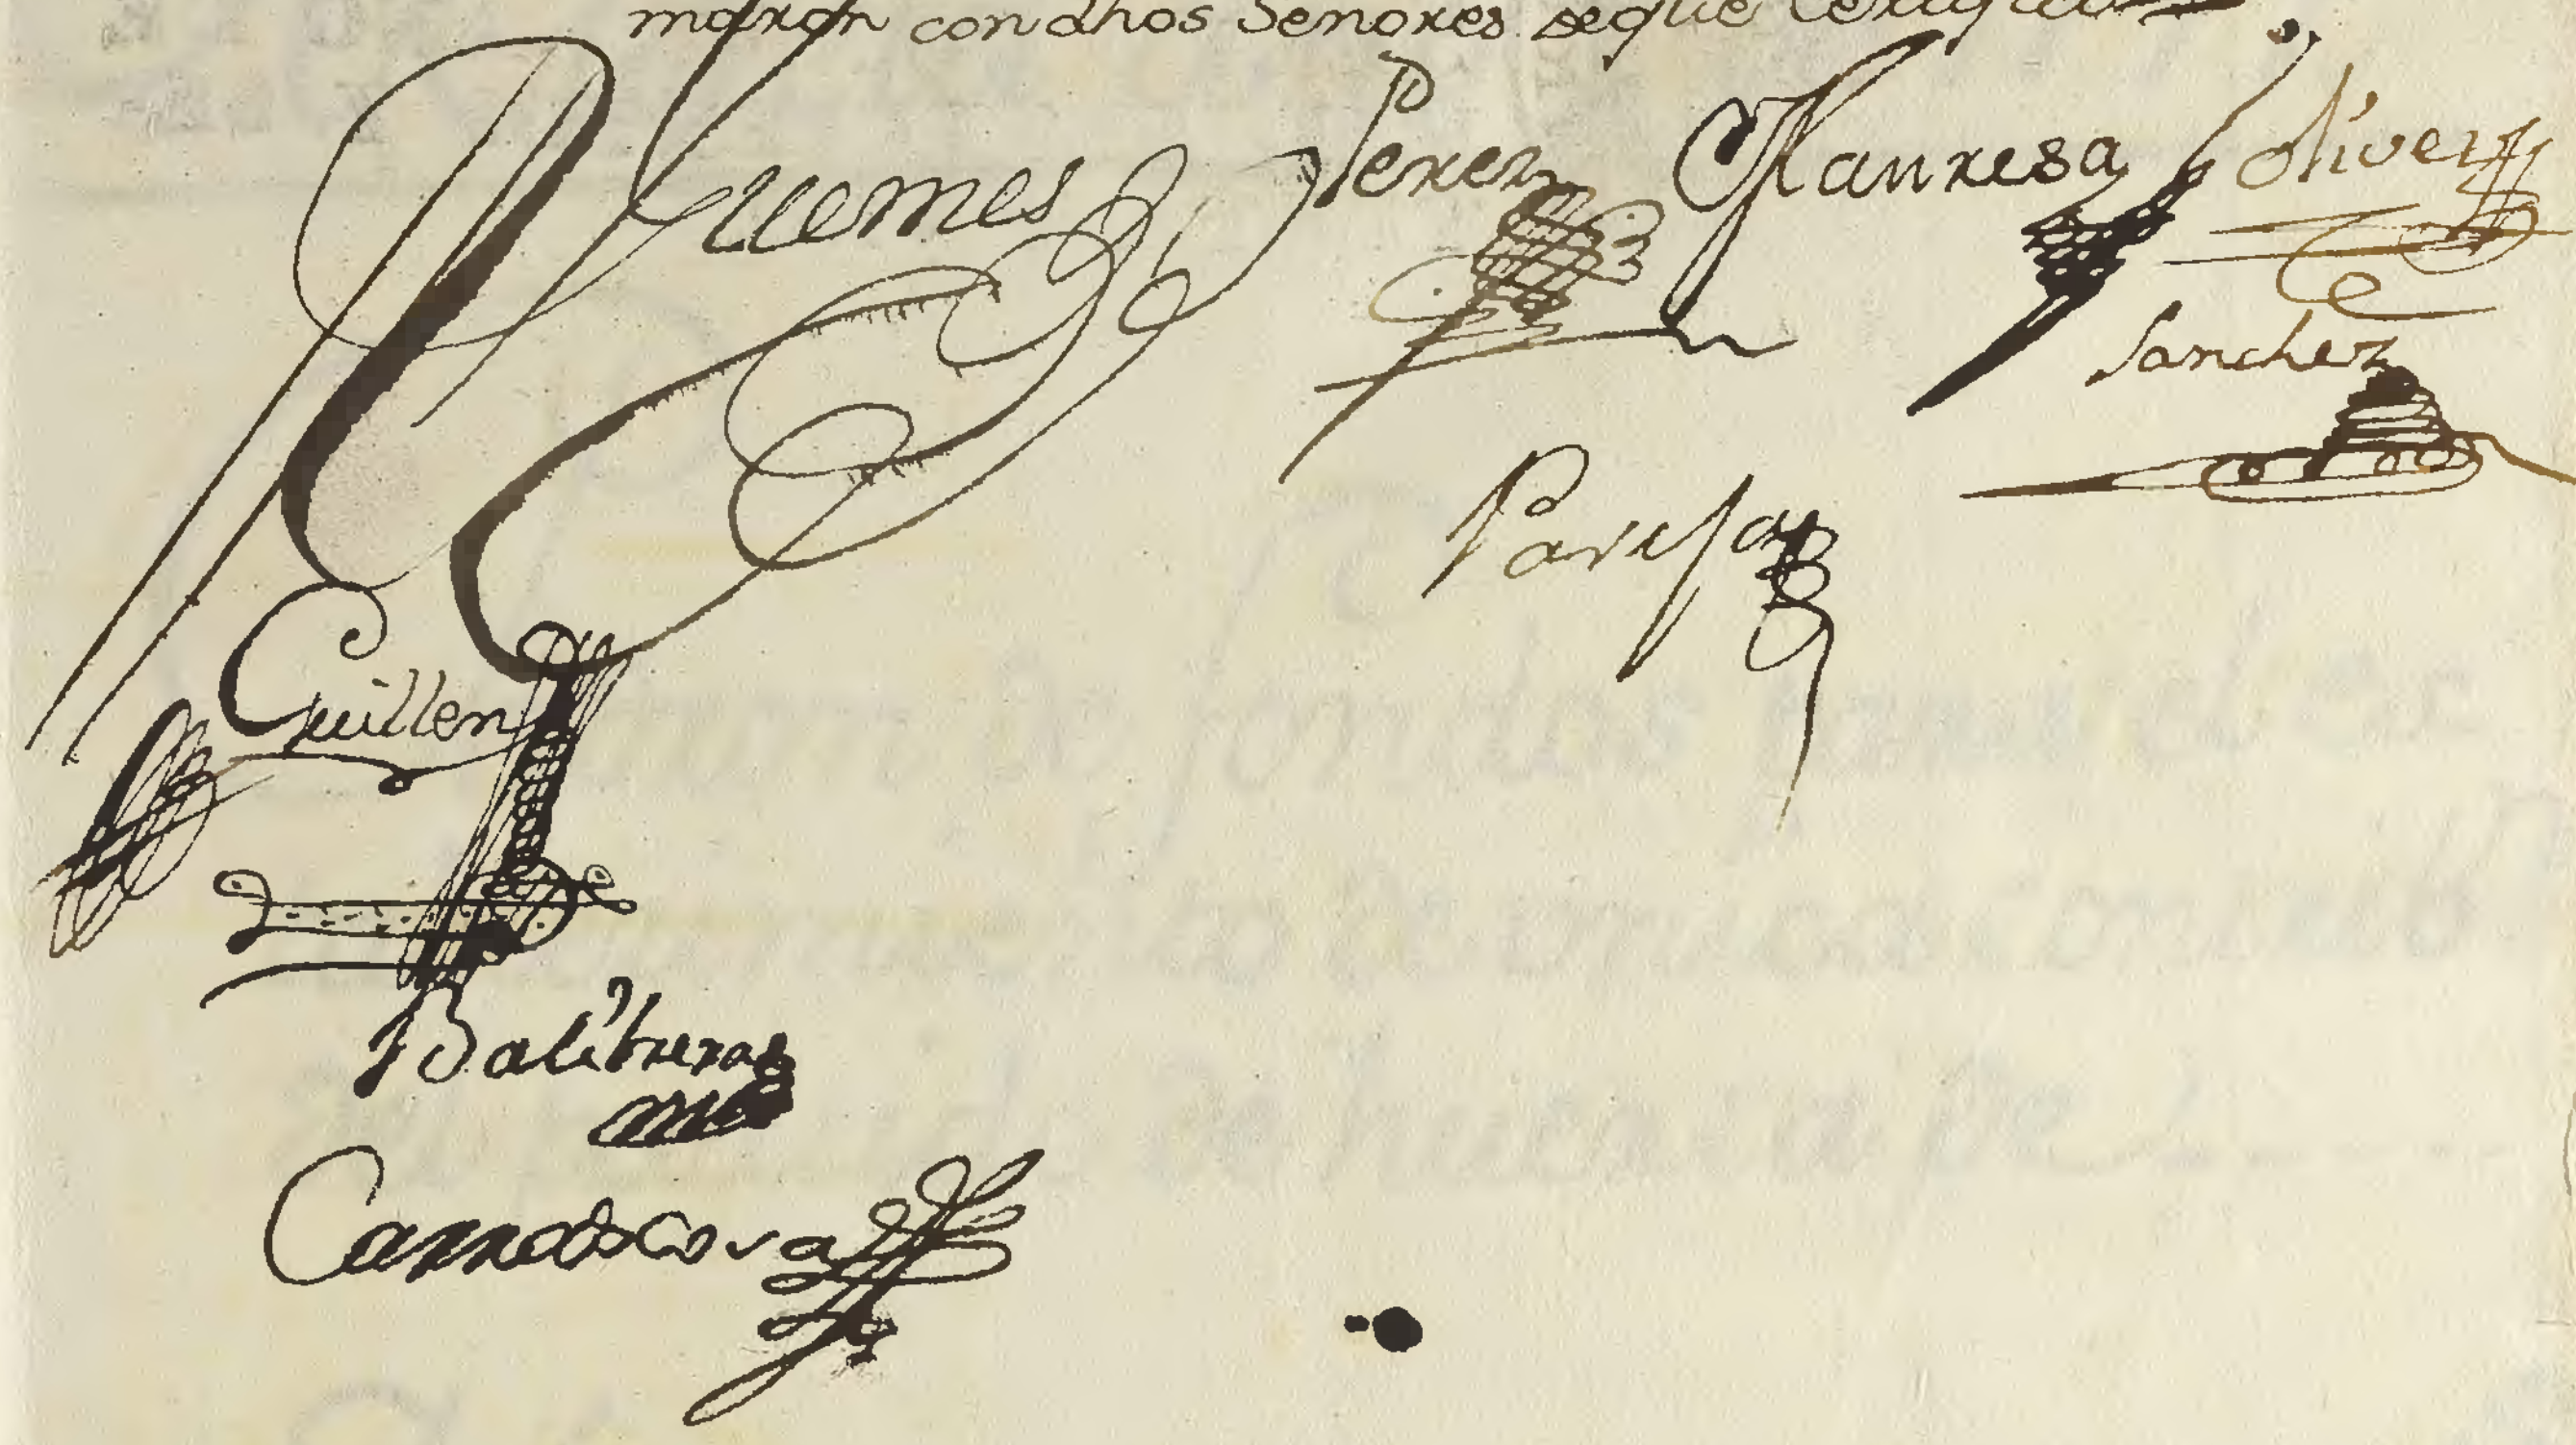 maron con dhos Señores de que Certifico
Guemes Perez Manresa Oliver
Sanchez
Pareja
Guillen
Balibrera
Carrascosa